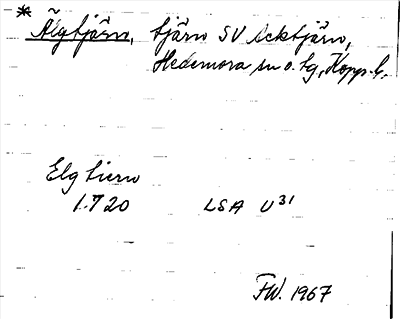 * Älgtjärn, tjärn SV Acktjärn,
Hedemora sn o. tg, Kopp. l.
Elg tiern
1.720 LSA U31
FW. 1967